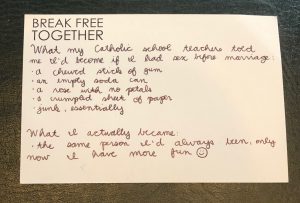 BREAK FREE
TOGETHER
What my Catholic school teachers told
me I'd become if I had sex before marriage:
• a chewed stick of gum
• an empty soda can
• a rose with no petals
• a crumpled sheet of paper
• junk, essentially
What I actually became:
• the same person I'd always been, only
now I have more fun ☺